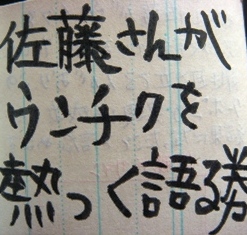 佐藤さんが
ウンチクを
熱っく語る勝